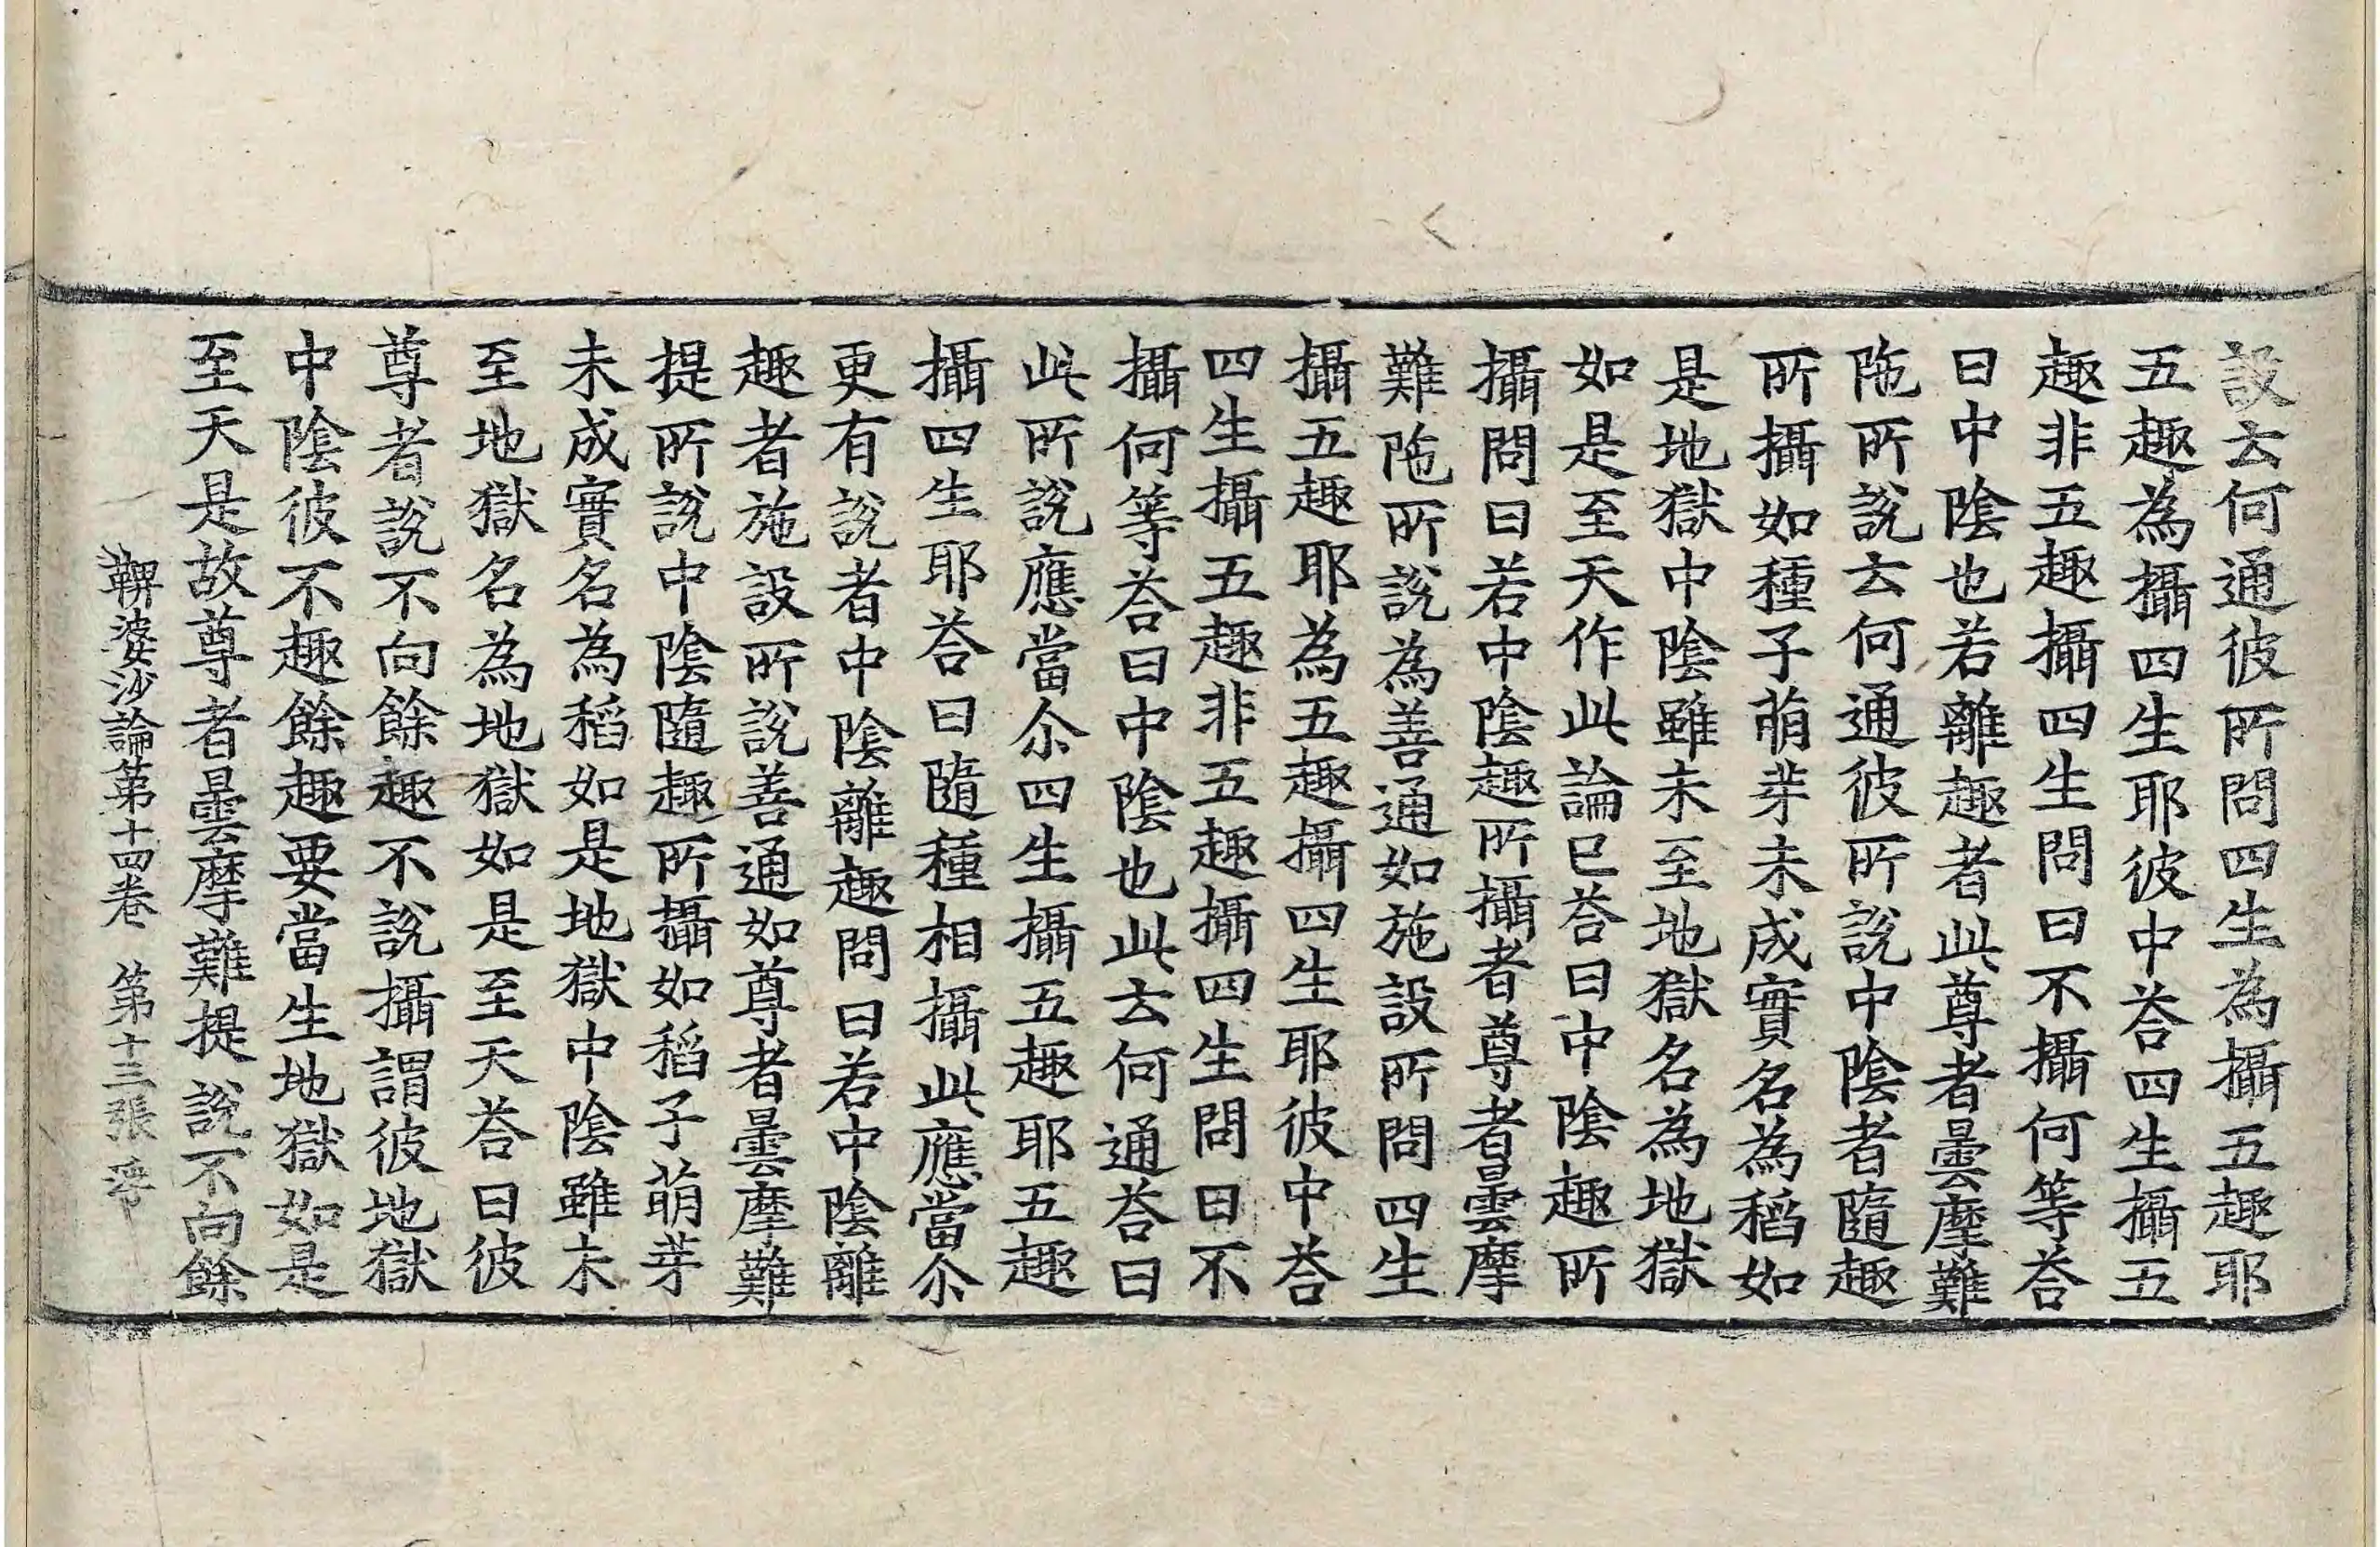 設云何通彼所問四生為攝五趣耶
五趣為攝四生耶彼中荅四生攝五
趣非五趣攝四生問曰不攝何等荅
曰中陰也若離趣者此尊者曇摩難
陁所說云何通彼所說中陰者隨趣
所攝如種子萌芽未成實名為稻如
是地獄中陰雖未至地獄名為地獄
如是至天作此論已荅曰中陰趣所
攝問曰若中陰趣所攝者尊者曇摩
難陁所說為善通如施設所問四生
攝五趣耶為五趣攝四生耶彼中荅
四生攝五趣非五趣攝四生問曰不
攝何等荅曰中陰也此云何通荅曰
此所說應當尒四生攝五趣耶五趣
攝四生耶荅曰隨種相攝此應當尒
更有說者中陰離趣問曰若中陰離
趣者施設所說善通如尊者曇摩難
提所說中陰隨趣所攝如稻子萌芽
未成實名為稻如是地獄中陰雖未
至地獄名為地獄如是至天荅曰彼
尊者說不向餘趣不說攝謂彼地獄
中陰彼不趣餘趣要當生地獄如是
至天是故尊者曇摩難提說不向餘
鞞婆沙論第十四卷　第十三張